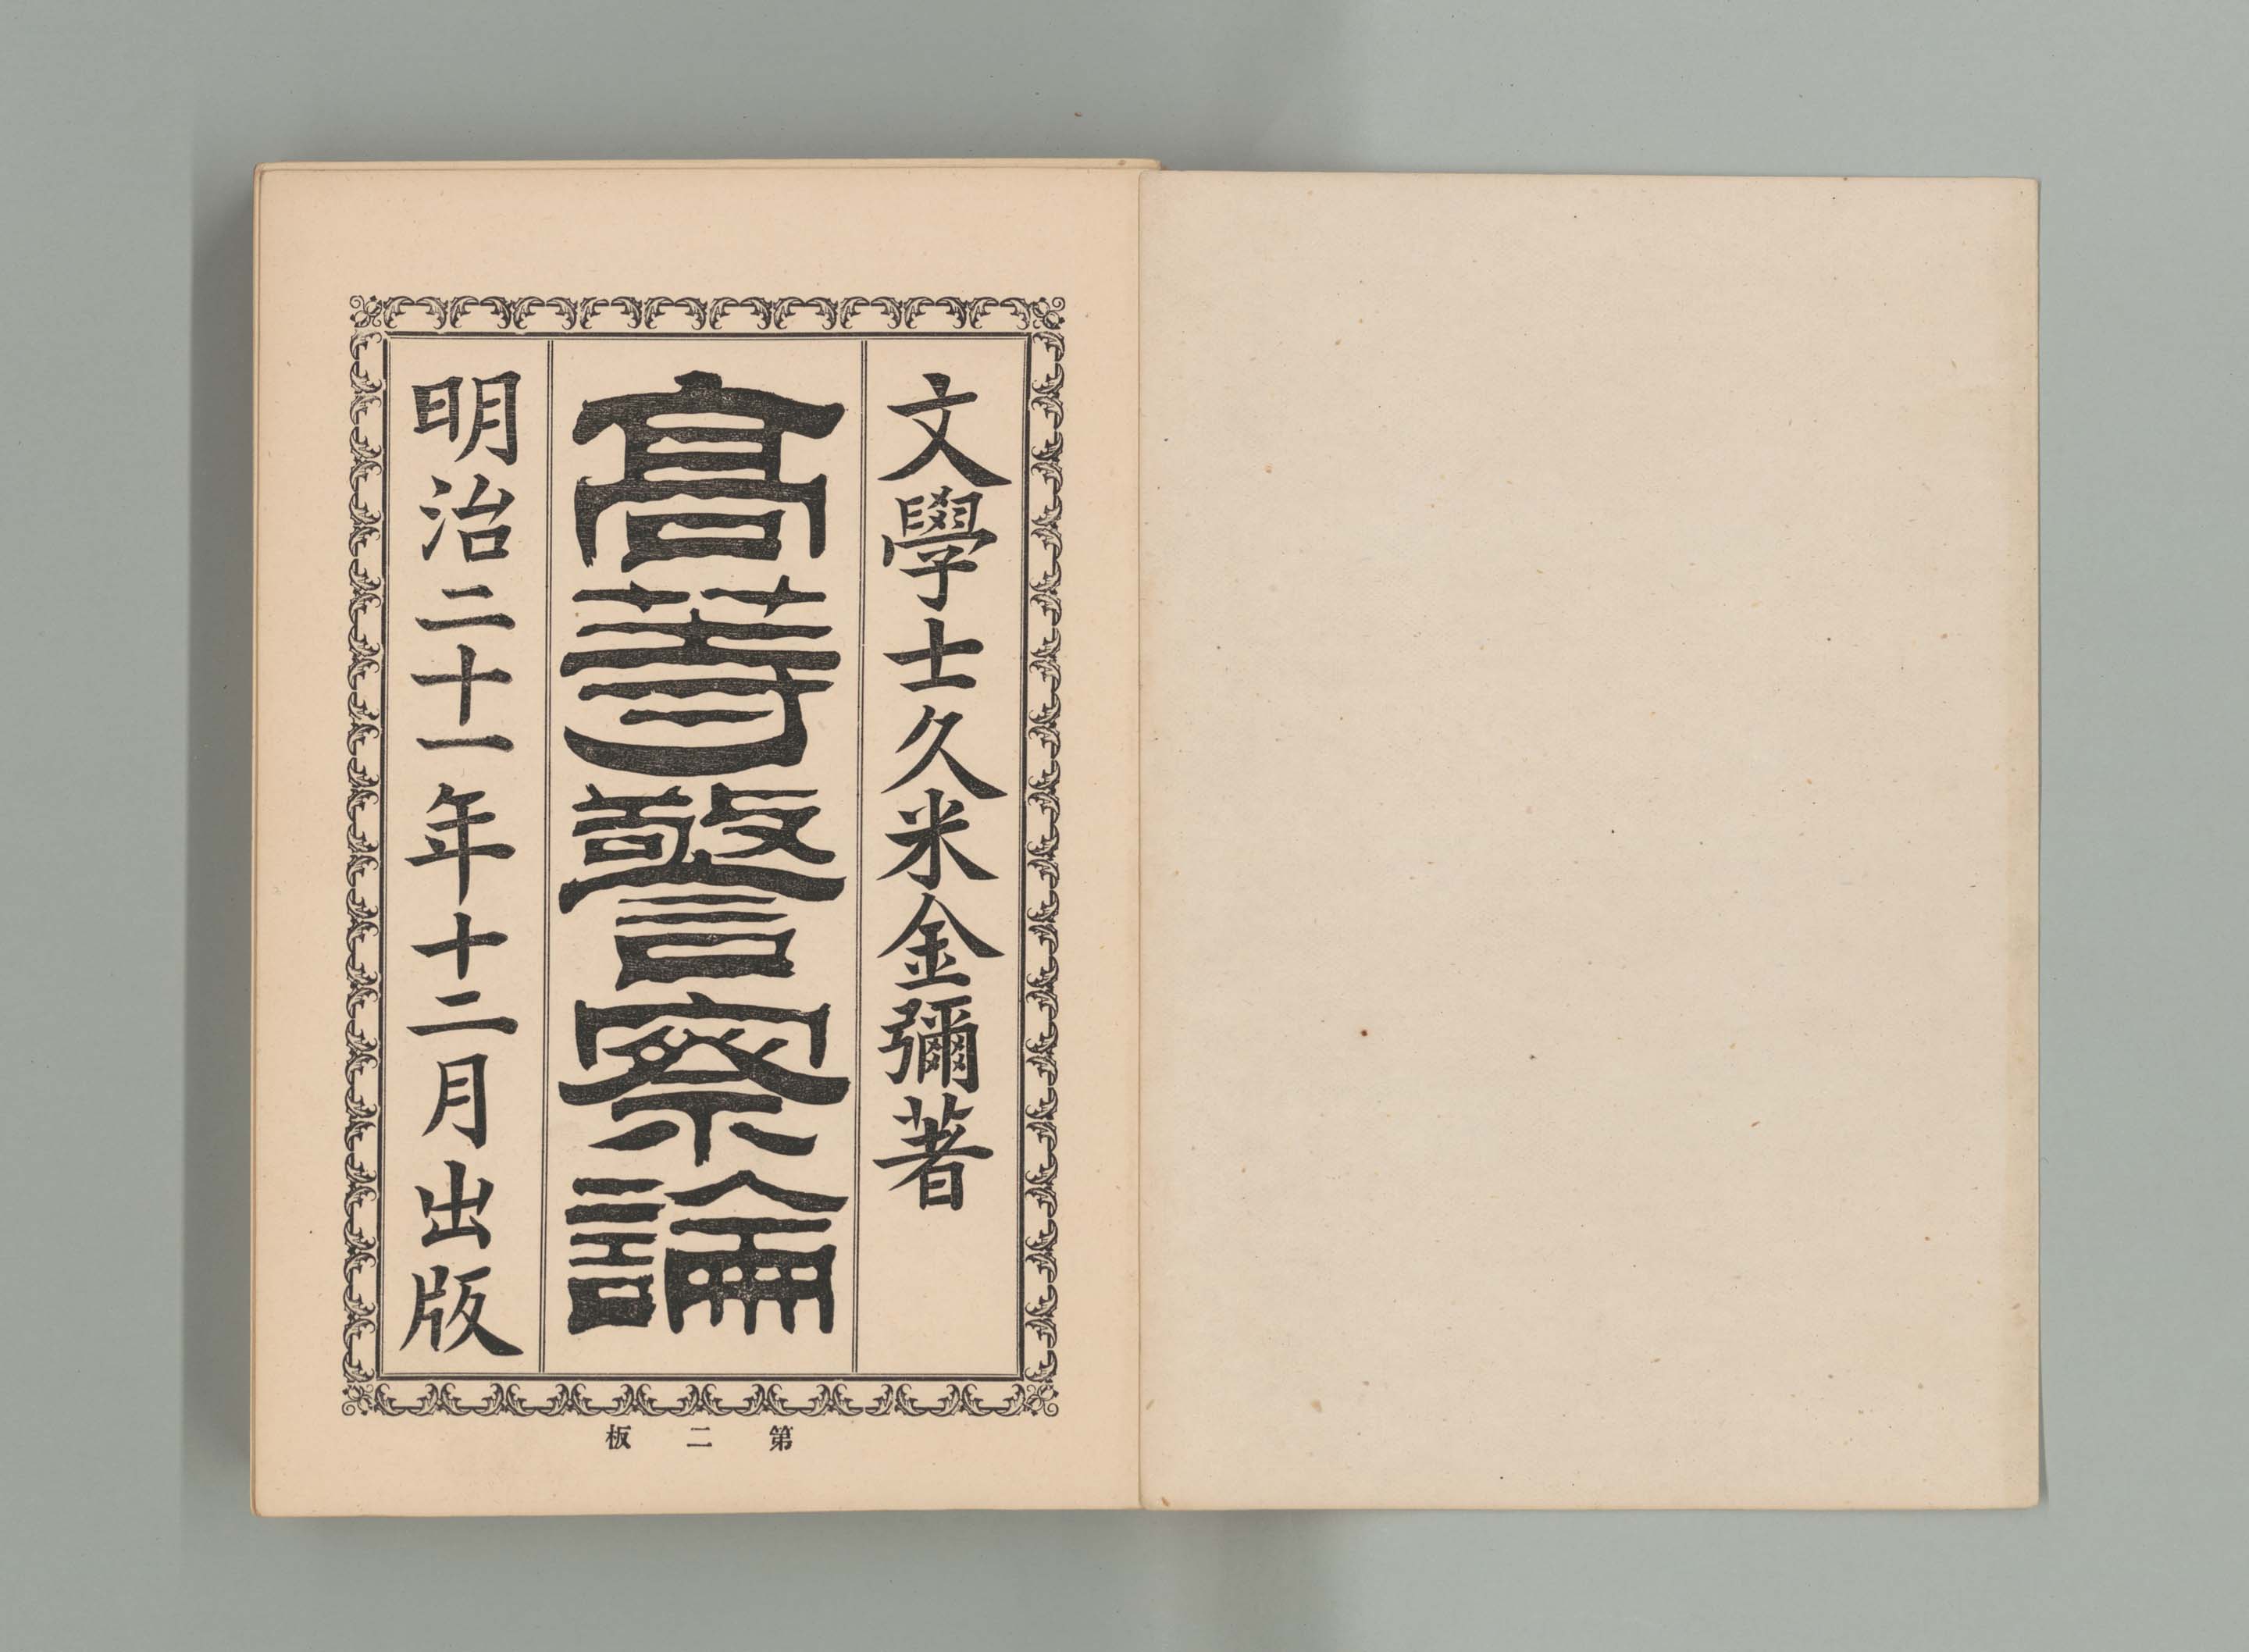 文學士久米金彌著
高等警察論
明治二十一年十二月出版
第二板